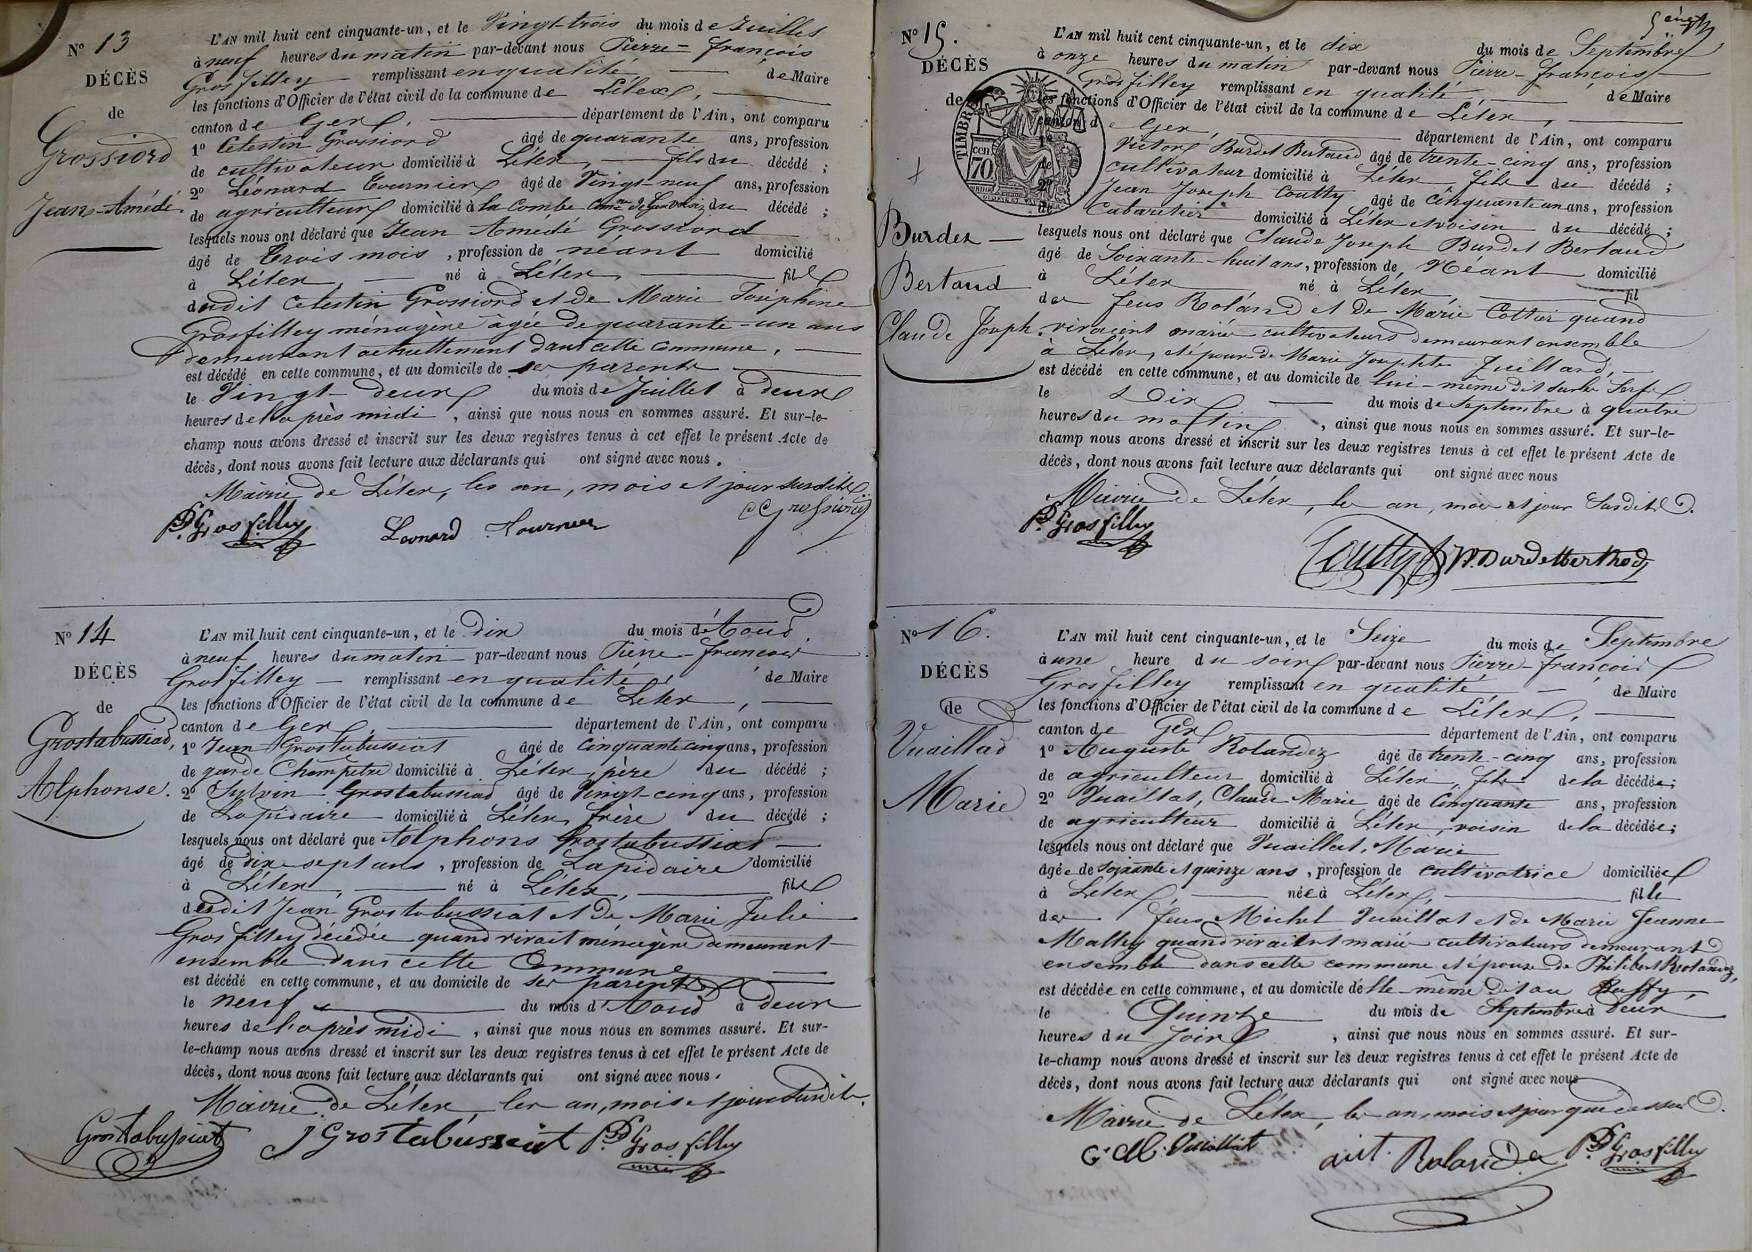 N° 13
DÉCÈS
de
Grossiord
Jean-Amédé
L'AN mil huit cent cinquante-un, et le Vingt-trois du mois de Juillet
à neuf heures du matin par-devant nous Pierre-françois
Grosfilley remplissant en qualité de Maire
les fonctions d'Officier de l'état civil de la commune de Lélex,
canton de Gex, département de l'Ain, ont comparu
1° Célestin Grossiord âgé de quarante ans, profession
de cultivateur domicilié à Lélex, fils du décédé ;
2° Léonard Tournier âgé de Vingt-neuf ans, profession
de agriculteur domicilié à la combe du décédé ;
lesquels nous ont déclaré que Jean Amédé Grossiord
âgé de trois mois, profession de néant domicilié
à Lélex, né à Lélex, fils
dudit Celestin Grossiord et de Marie Joséphine
Grosfilley ménagère âgée de quarante-un ans
demeurant actuellement dans cette commune,
est décédé en cette commune, et au domicile de ses parents
le Vingt deux du mois de Juillet à deux
heures de l'après midi, ainsi que nous nous en sommes assuré. Et sur-le-
champ nous avons dressé et inscrit sur les deux registres tenus à cet effet le présent Acte de
décès, dont nous avons fait lecture aux déclarants qui ont signé avec nous.
Mairie de Lélex, les an, mois et jour susdits.
P. Grosfilley Léonard Tournier C Grossiord
N° 14
DÉCÈS
de
Grostabussiat,
Alphonse.
L'AN mil huit cent cinquante-un, et le dix du mois d'Aoud
à neuf heures du matin par-devant nous Pierre-françois
Grosfilley remplissant en qualité, de Maire
les fonctions d'Officier de l'état civil de la commune de Lélex,
canton de Gex département de l'Ain, ont comparu
1° Jean Grostabussiat âgé de cinquante cinq ans, profession
de garde Champêtre domicilié à Lélex, père du décédé ;
2° Sylvin Grostabussiat âgé de Vingt-cinq ans, profession
de Lapidaire domicilié à Lélex, frère du décédé ;
lesquels nous ont déclaré que Alphons Grostabussiat
âgé de dix sept ans, profession de Lapidaire domicilié
à Lélex, né à Lélex, fils
dudit Jean Grostabussiat et de Marie Julie
Gros filley décédée quand vivait ménagère demeurant
ensemble dans cette Commune
est décédé en cette commune, et au domicile de ses parents
le neuf du mois d'Aoud à deux
heures de l'après midi, ainsi que nous nous en sommes assuré. Et sur-
le-champ nous avons dressé et inscrit sur les deux registres tenus à cet effet le présent Acte de
décès, dont nous avons fait lecture aux déclarants qui ont signé avec nous.
Mairie de Lélex, les an, mois et jour susdits.
Grostabussiat J Grostabussiat P. Grosfilley
N° 15.
DÉCÈS
de
Burdet
Bertaud
Claude Joseph
TIMBRE
70 cen
L'AN mil huit cent cinquante-un, et le dix du mois de Septembre
à onze heures du matin par-devant nous Pierre-françois
Grosfilley remplissant en qualité de Maire
les fonctions d'Officier de l'état civil de la commune de Lélex,
canton de Gex, département de l'Ain, ont comparu
1° Victor Burdet Bertaud âgé de trente-cinq ans, profession
de cultivateur domicilié à Lélex fils du décédé ;
2° Jean Joseph Coutty âgé de cinquante un ans, profession
de Cabaretier domicilié à Lélex et voisin du décédé ;
lesquels nous ont déclaré que Claude Joseph Burdet Bertaud
âgé de Soixante-huit ans, profession de Néant domicilié
à Lélex né à Lélex fil
de feus Roland et de Marie Cottier quand
vivaient marié cultivateurs demeurant ensemble
à Lélex, et époux de Marie Josephte Juillard,
est décédé en cette commune, et au domicile de lui-même dit
le Dix du mois de Septembre à quatre
heures du matin, ainsi que nous nous en sommes assuré. Et sur-le-
champ nous avons dressé et inscrit sur les deux registres tenus à cet effet le présent Acte de
décès, dont nous avons fait lecture aux déclarants qui ont signé avec nous
Mairie de Lélex, les an, mois et jour susdits.
P. Grosfilley
Coutty
N° 16.
DÉCÈS
de
Vuaillat
Marie
L'AN mil huit cent cinquante-un, et le Seize du mois de Septembre
à une heure du soir par-devant nous Pierre-françois
Grosfilley remplissant en qualité de Maire
les fonctions d'Officier de l'état civil de la commune de Lélex,
canton de Gex département de l'Ain, ont comparu
1° Auguste Rolandez âgé de trente-cinq ans, profession
de agriculteur domicilié à Lélex, fils de la décédée;
2° Vuaillat, Claude Marie âgé de Cinquante ans, profession
de agriculteur domicilié à Lélex, voisin de la décédée;
lesquels nous ont déclaré que Vuaillat, Marie
âgée de Soixante et quinze ans, profession de cultivatrice domiciliée
à Lélex, née à Lélex, fille
de feus Michel Vuaillat et de Marie Jeanne
Malley quand vivaient marié cultivateurs demeurant
ensemble dans cette commune et épouse de Philibert Rolandez,
est décédée en cette commune, et au domicile d'elle-même dit au
le Quinze du mois de Septembre à deux
heures du soir, ainsi que nous nous en sommes assuré. Et sur-
le-champ nous avons dressé et inscrit sur les deux registres tenus à cet effet le présent Acte de
décès, dont nous avons fait lecture aux déclarants qui ont signé avec nous
Mairie de Lélex, les an, mois et jour que dessus.
C. M. Vuaillat aut. Rolandez P. Grosfilley